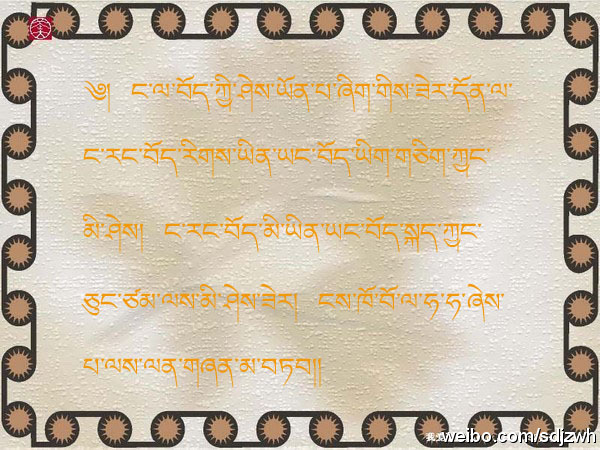 ༄། ང་ལ་བོད་ཀྱི་ཤེས་ཡོན་པ་ཞིག་གིས་ཟེར་དོན་ལ་
ང་རང་བོད་རིགས་ཡིན་ཡང་བོད་ཡིག་གཅིག་ཀྱང་
མི་ཤེས། ང་རང་བོད་མི་ཡིན་ཡང་བོད་སྐད་ཀྱང་
ཅུང་ཙམ་ལས་མི་ཤེས་ཟེར། ངས་ཁོ་བོ་ལ་ཧ་ཧ་ཞེས་
པ་ལས་ལན་གཞན་མ་བཏབ།།
weibo.com/sdjzwh